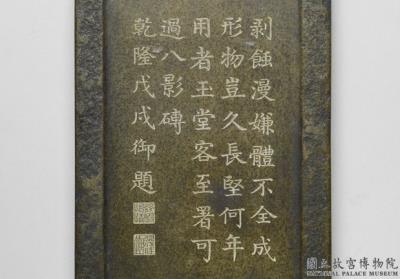 剥蝕漫嫌體不全成
形物豈久長堅何年
用者玉堂客至署可
過八影磚
乾隆戊戌御題
國立故宮博物院
NATIONAL PALACE MUSEUM